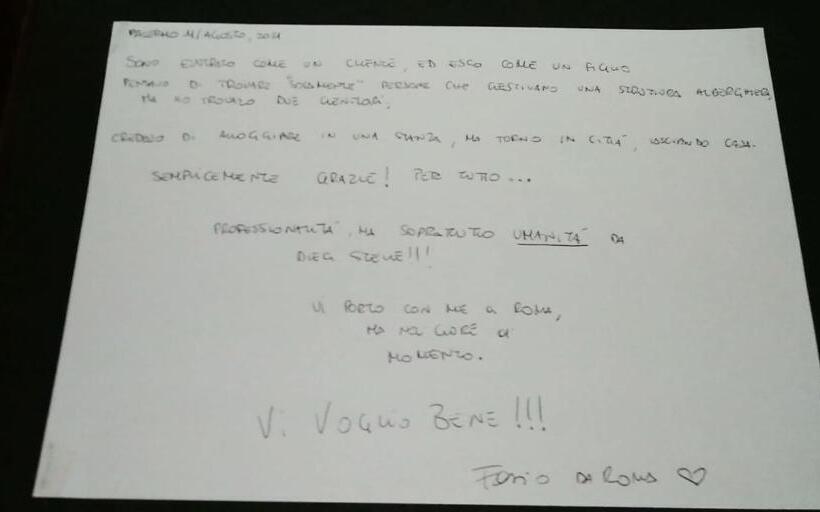 PALERMO 11/AGOSTO, 2021
SONO ENTRATO COME UN CLIENTE, ED ESCO COME UN FIGLIO
PENSAVO DI TROVARE "SOLAMENTE" PERSONE CHE GESTIVANO UNA STRUTTURA ALBERGHIERA,
MA HO TROVATO DUE GENITORI,
CREDEVO DI ALLOGGIARE IN UNA STANZA, MA TORNO IN CITTÀ, LASCIANDO CASA.
SEMPLICEMENTE GRAZIE! PER TUTTO...
PROFESSIONALITÀ, MA SOPRATUTTO UMANITÀ DA
STELLE!!!
VI PORTO CON ME A ROMA,
MA NEL CUORE
MOMENTO.
Vi VOGLIO BENE!!!
DA ROMA ♡